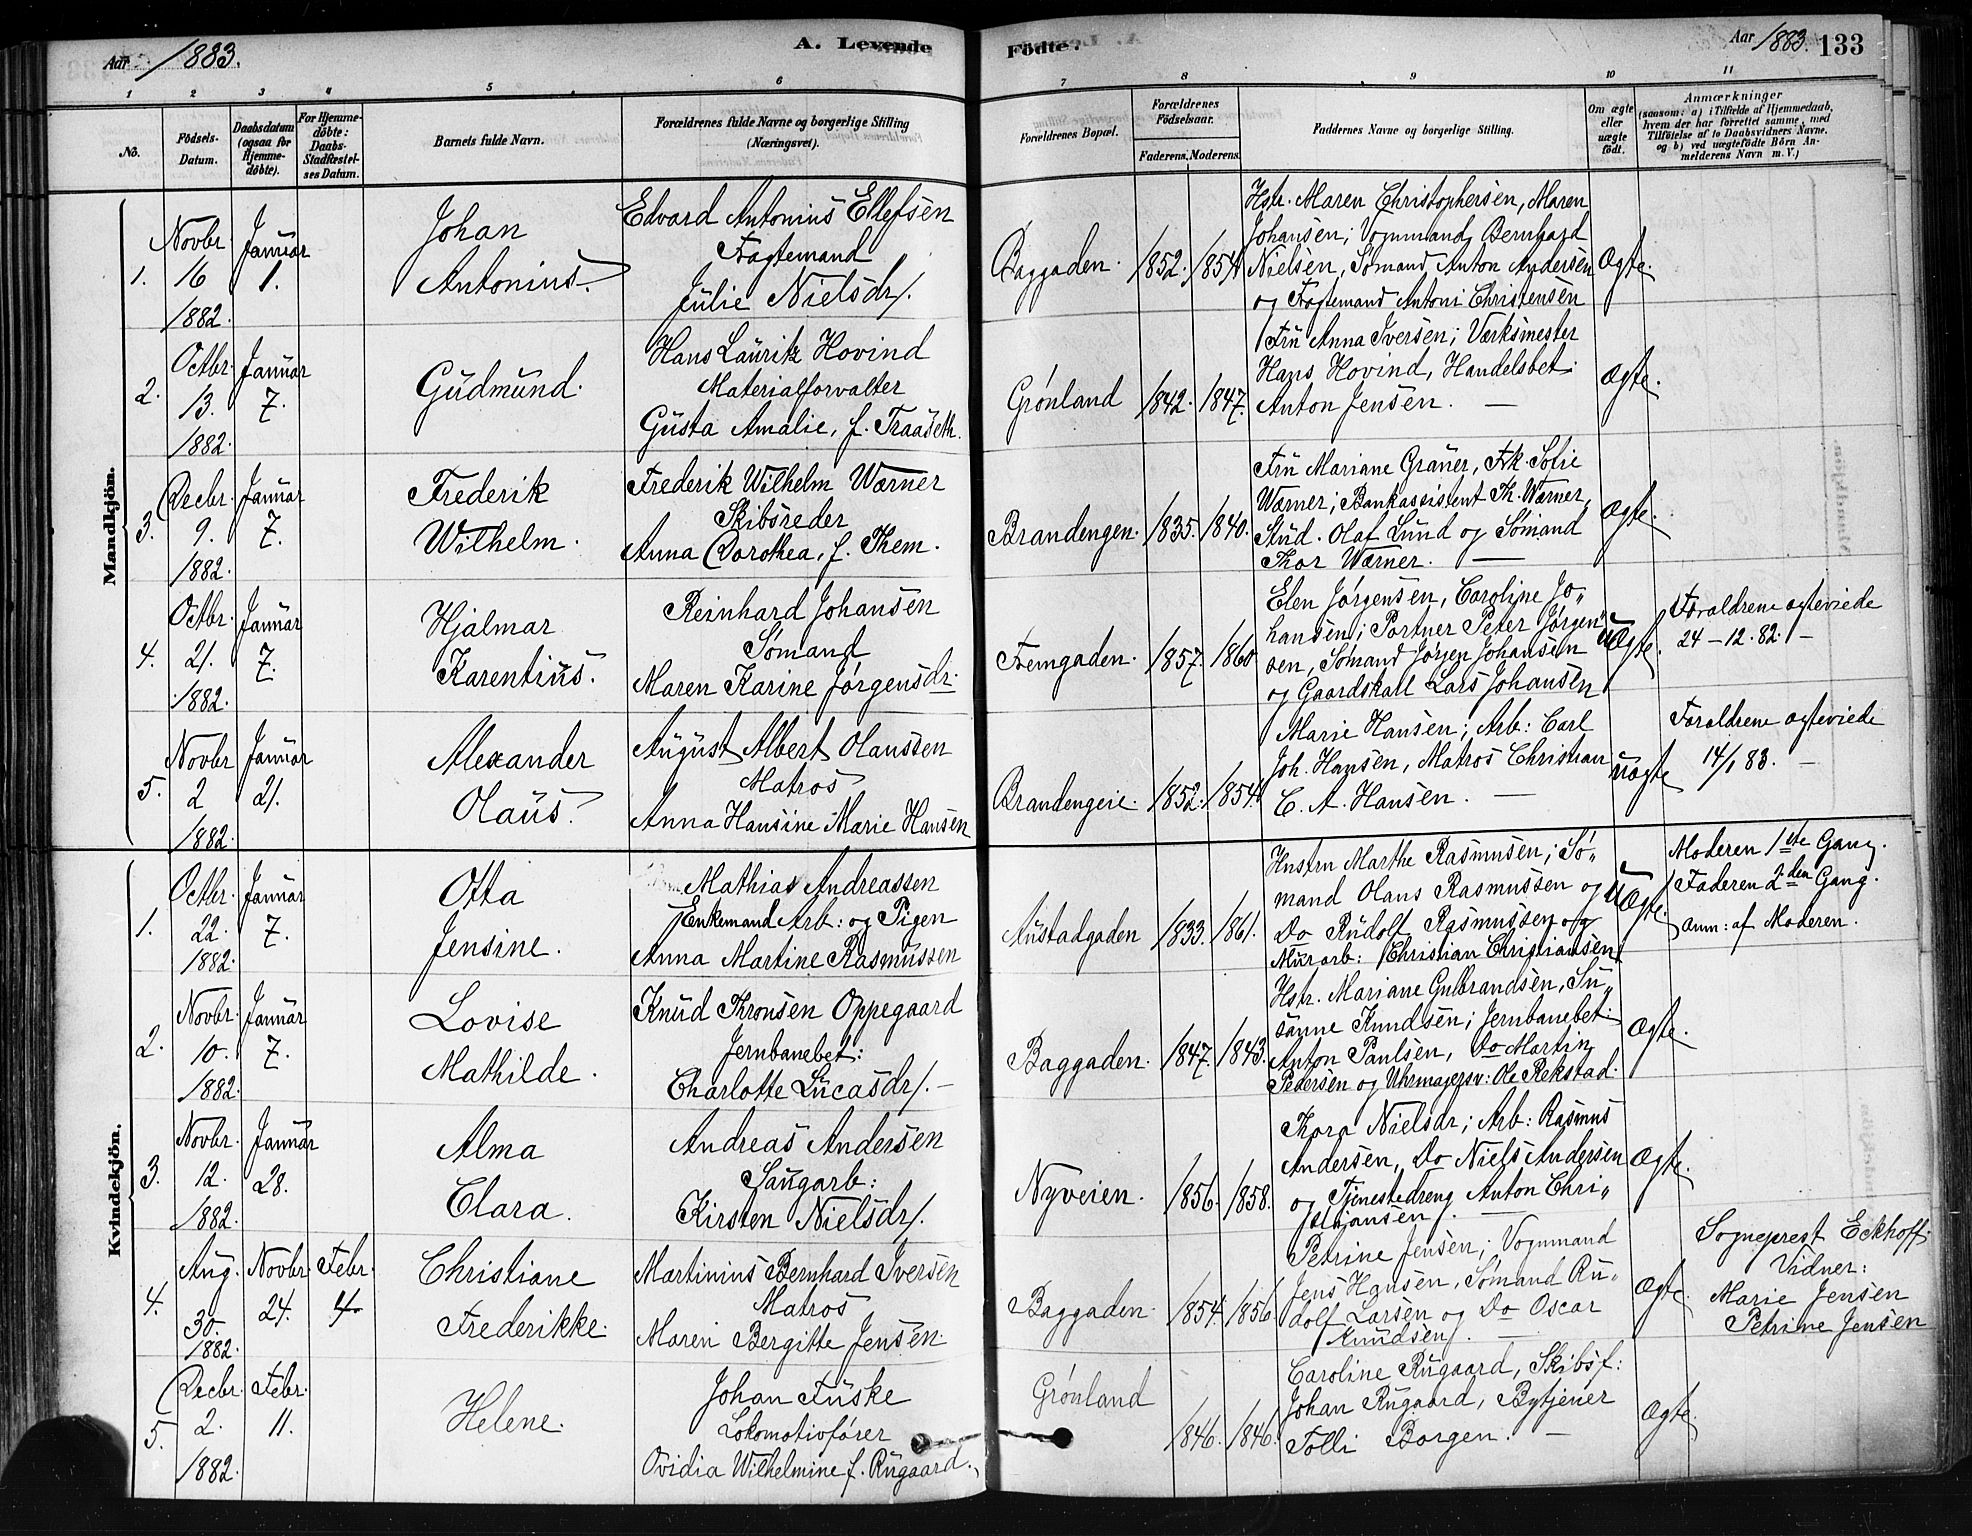 Aar 1883.
A. Levende
Födte.
Aar 1883. 133
1 2 3 4 5 6 7 8 9 10 11
No.
Födsels-Datum.
Daabsdatum (ogsaa for Hjemme-döbte).
For Hjemme-döbte: Daabs-Stadfæstel-ses Datum.
Barnets fulde Navn.
Forældrenes fulde Navne og borgerlige Stilling (Næringsvei).
Forældrenes Bopæl.
Forældrenes Födselsaar.
Faderens. Moderens.
Faddernes Navne og borgerlige Stilling.
Om ægte eller uægte födt.
Anmærkninger
(saasom: a) i Tilfælde af Hjemmedaab,
hvem der har forrettet samme, med
Tilföielse af to Daabsvidners Navne.
og b) ved uægtefödte Börn An-
melderens Navn m. V.)
Mandkjön.
1.
Novbr. 16 1882.
Januar 1.
Johan
Antonius.
Edvard Antonius Ellefsen
Fragtemand
Julie Nielsdr.
Baggaden. 1852. 1854.
Hstr. Maren Christophersen, Maren
Johansen; Vognmand Bernhard
Nielsen, Sømand Anton Andersen
og Fragtemand Antoni Christensen
Ægte.
2.
Octbr. 13. 1882.
Januar 7.
Gudmund.
Hans Lauritz Hovind
Materialforvalter
Gusta Amalie, f. Traaseth.
Grønland 1842. 1847.
Fru Anna Iversen; Værksmester
Hans Hovind, Handelsbet.
Anton Jensen. —
Ægte.
3.
Decbr. 9. 1882.
Januar 7.
Frederik
Wilhelm.
Frederik Wilhelm Wærner
Skibsreder
Anna Dorothea, f. Them.
Brandengen. 1835. 1840.
Fru Mariane Graner, Frk. Sofie
Wærner; Bankassistent Th. Wærner,
Stud. Olaf Lund og Sømand
Thor Wærner. —
Ægte.
4.
Octbr. 21. 1882.
Januar 7.
Hjalmar
Karentius.
Reinhard Johansen
Sømand
Maren Karine Jørgensdr.
Fremgaden. 1857. 1860
Elen Jørgensen, Caroline Jo„
hansen; Portner Peter Jørgen„
sen, Sømand Jørgen Johansen
og Gaardskall Lars Johansen
uÆgte.
Forældrene ægteviede
24 - 12. 82. —
5.
Novbr 2 1882.
Januar 21.
Alexander
Olaus.
August Albert Olaussen
Matros
Anna Hansine Marie Hansen
Brandengeie. 1852. 1854.
Marie Hansen; Arb: Carl
Joh. Hansen, Matros Christian
C. A. Hansen. —
uægte
Forældrene ægteviede
14/1 83. —
Kvindekjön.
1.
Octbr. 22. 1882.
Januar 7.
Otta
Jensine.
Mathias Andreassen
Enkemand Arb: og Pigen
Anna Martine Rasmussen
Austadgaden 1833. 1861.
Hustru Marthe Rasmusen; Sø„
mand Olaus Rasmussen og
Do Rudolf Rasmussen og
Murarb: Christian Christiansen
uÆgte.
Moderen 1ste Gang.
Faderen 2den Gang.
Anm: af Moderen.
2.
Novbr. 10. 1882.
Januar 7.
Lovise
Mathilde.
Knud Thronsen Oppegaard
Jernbanebet:
Charlotte Lucasdr. —
Baggaden. 1847. 1843.
Hstr. Mariane Gulbrandsen, Su„
sanne Knudsen; Jernbanebet.
Anton Paulsen, Do Martin
Pedersen og Uhrmagersv: Ole Rekstad.
Ægte.
3.
Novbr. 12. 1882.
Januar 28.
Alma
Clara.
Andreas Andersen
Saugarb:
Kirsten Nielsdr.
Nyveien. 1856. 1858.
Thora Nielsdr; Arb: Rasmus
Andersen, Do Niels Andersen
og Tjenestedreng Anton Chri„
stiansen. —
Ægte.
4.
Aug. 30. 1882.
Novbr. 24.
Febr. 4.
Christiane
Frederikke.
Martinius Bernhard Iversen
Matros
Maren Bergitte Jensen.
Baggaden. 1854. 1856
Petrine Jensen; Vognmand
Jens Hansen, Sømand Ru„
dolf Larsen og Do Oscar
Knudsen. —
Ægte.
Sogneprest Eckhoff.
Vidner:
Marie Jensen
Petrine Jensen
5.
Decbr. 2. 1882.
Febr. 11.
Helene.
Johan Fuske
Lokomotivfører
Ovidia Wilhelmine f. Rugaard.
Grønland 1846. 1846.
Caroline Rugaard, Skibsf:
Johan Rugaard, Bytjener
Tolli Borgen. —
Ægte.